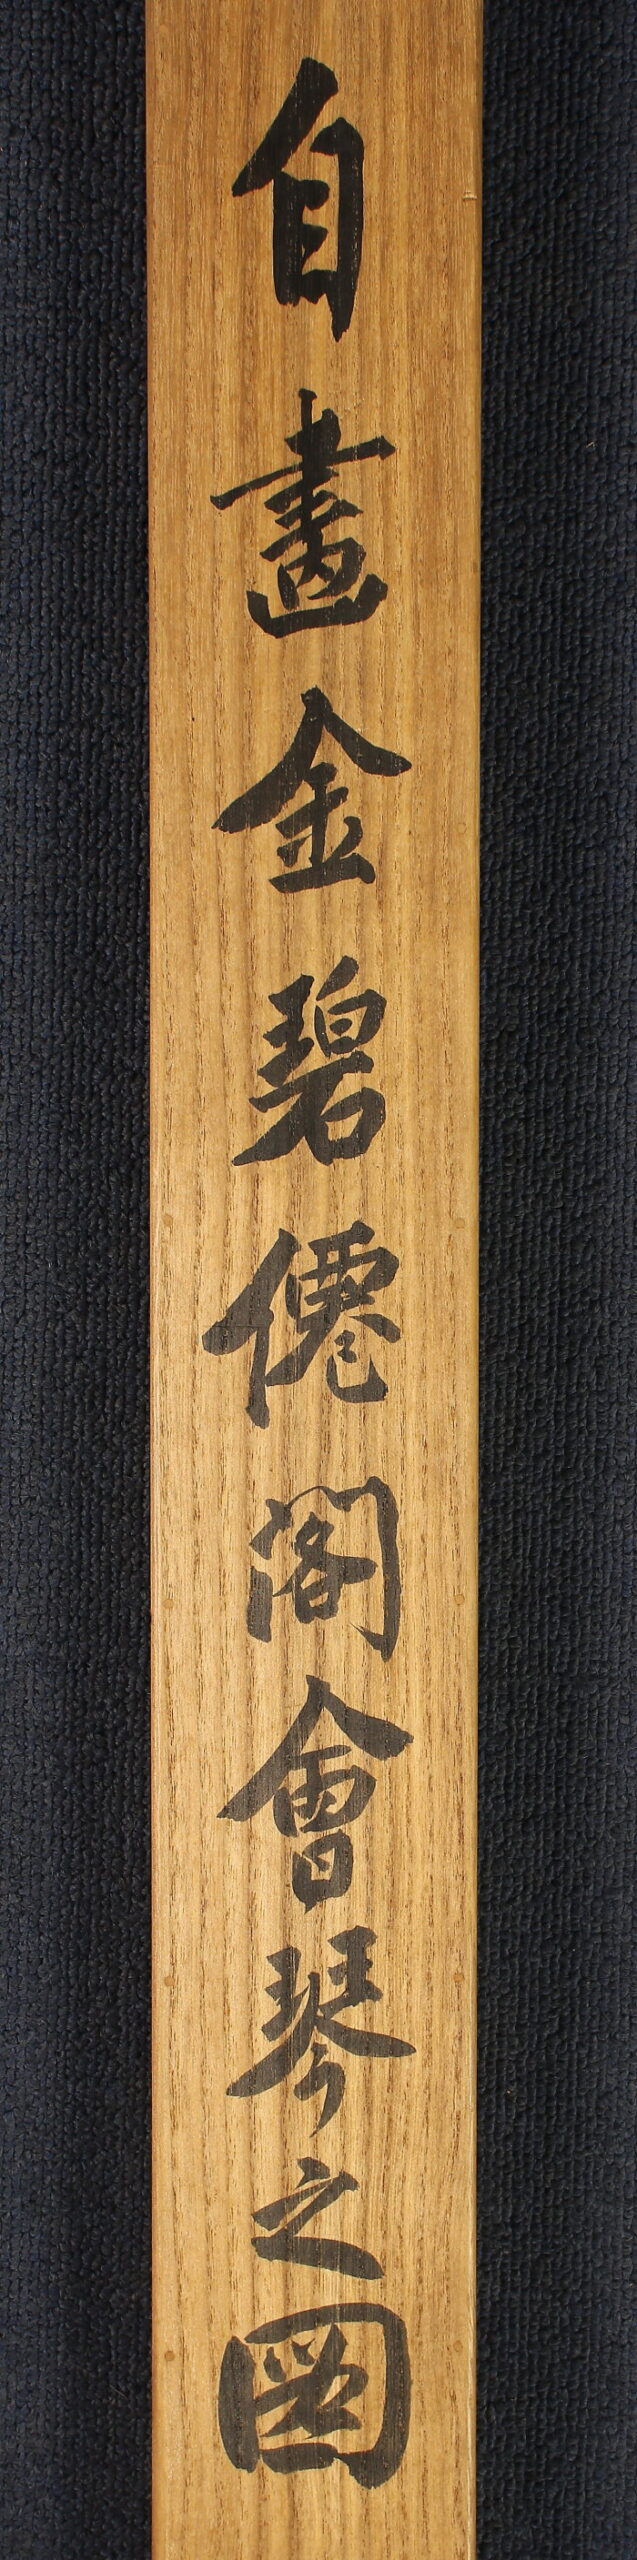 自畫金碧僊閣會琴之圖